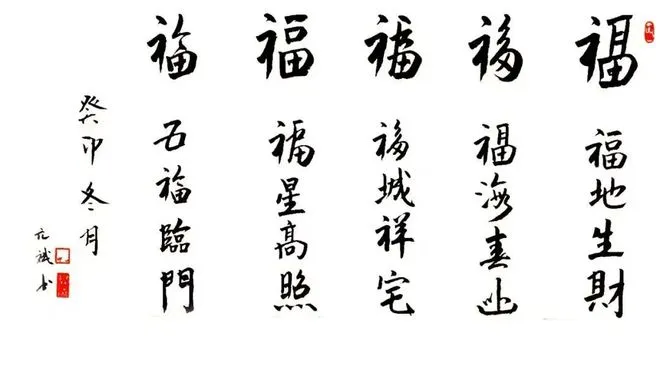 福
福地生財
福
福海
福
福城祥宅
福
福星高照
福
五福臨門
癸卯冬月
书